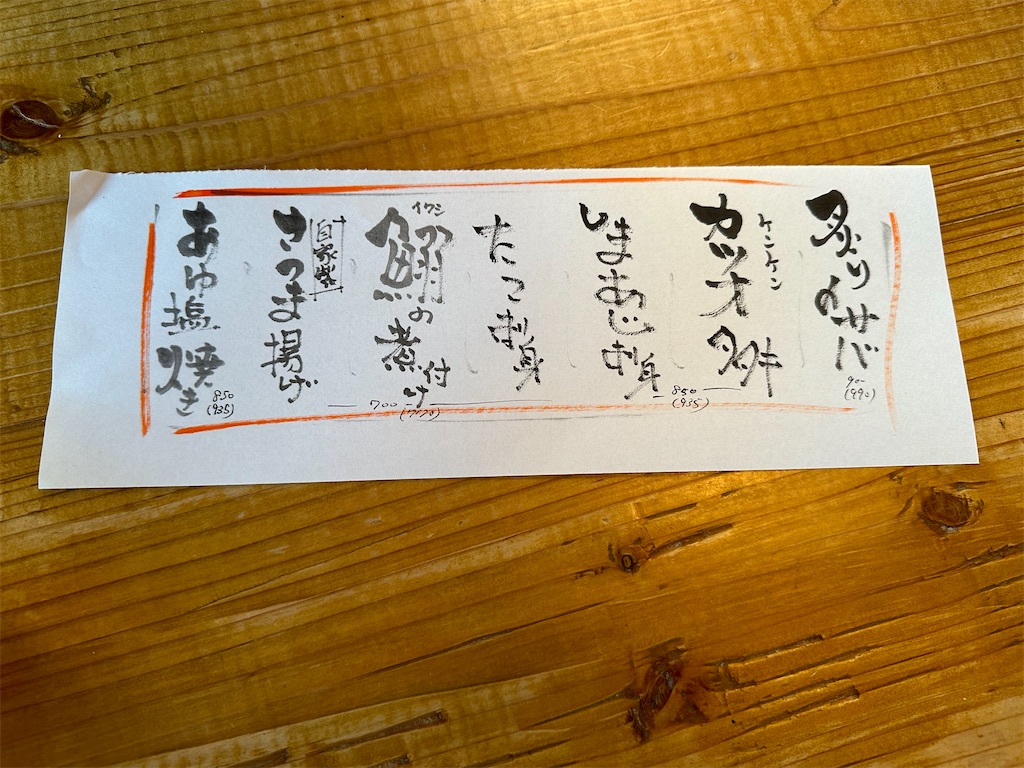 炙り〆サバ
900
(990)
ケンケン
カツオタタキ
850
(935)
しまあじ刺身
たこ刺身
イワシ
鰯の煮付け
700
(770)
自家製
さつま揚げ
あゆ塩焼き
850
(935)